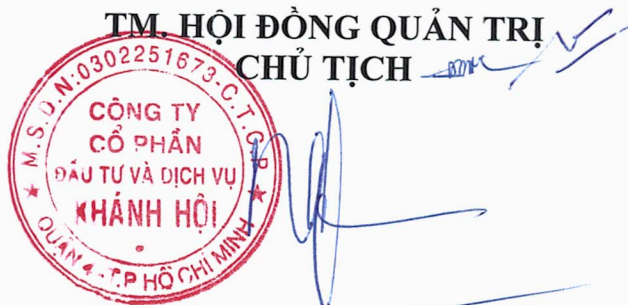 TM. HỘI ĐỒNG QUẢN TRỊ
CHỦ TỊCH
M.S.D.N:0302251673-C.T.C.P
CÔNG TY
CỔ PHẦN
ĐẦU TƯ VÀ DỊCH VỤ
KHÁNH HỘI
QUẬN 4 - T.P HỒ CHÍ MINH